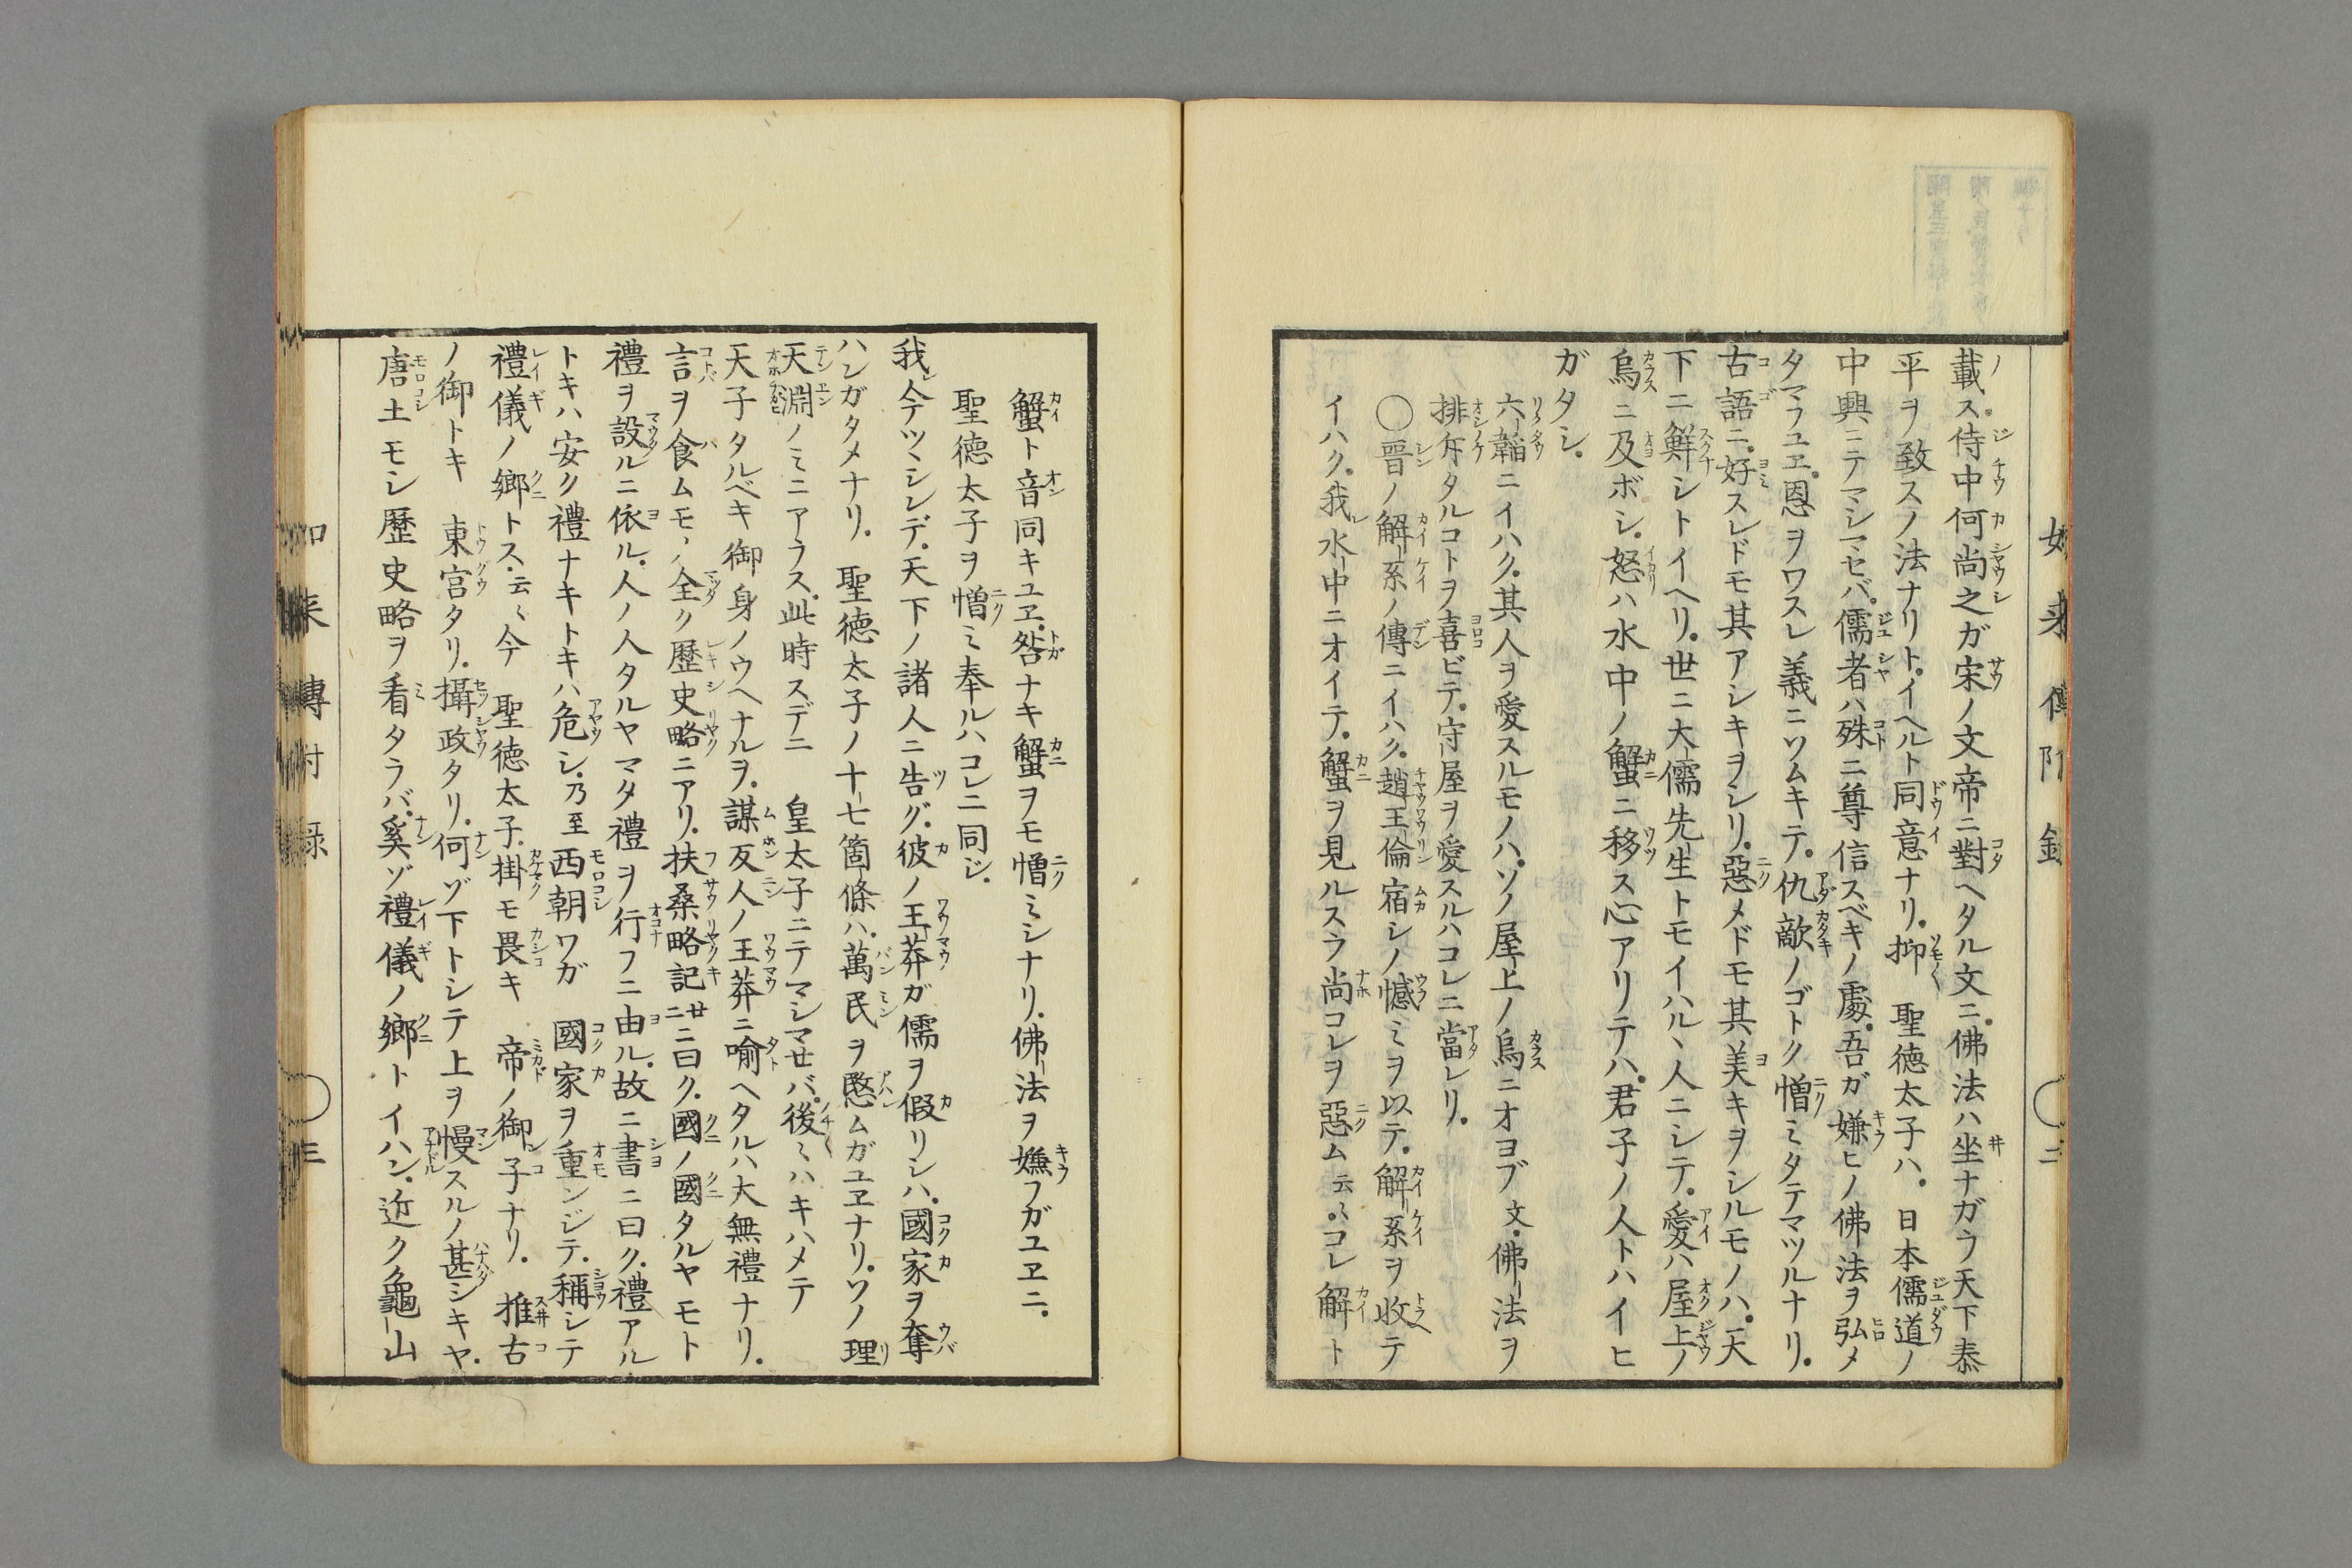 載ス。侍中何尚之ガ宋ノ文帝ニ對ヘタル文ニ。佛法ハ坐ナガラ天下泰
平ヲ致スノ法ナリト。イヘルト同意ナリ。抑　聖徳太子ハ。日本儒道ノ
中興ニテマシマセバ。儒者ハ殊ニ尊信スベキノ處。吾ガ嫌ヒノ佛法ヲ弘メ
タマフユヱ。恩ヲワスレ義ニソムキテ。仇敵ノゴトク憎ミタテマツルナリ。
古語ニ。好スレドモ其アシキヲシリ。惡メドモ其美キヲシルモノハ。天
下ニ鮮シトイヘリ。世ニ大儒先生トモイハルヽ人ニシテ。愛ハ屋上ノ
烏ニ及ボシ。怒ハ水中ノ蟹ニ移ス心アリテハ。君子ノ人トハイヒ
ガタシ。
六韜ニイハク。其人ヲ愛スルモノハ。ソノ屋上ノ烏ニオヨブ文。佛法ヲ
排斥タルコトヲ喜ビテ。守屋ヲ愛スルハコレニ當レリ。
〇晉ノ解系ノ傳ニイハク。趙王倫宿シノ憾ミヲ以テ。解系ヲ收テ
イハク。我レ水中ニオイテ。蟹ヲ見ルスラ尚コレヲ惡ム云云。コレ解ト
如來傳附録　〇二
蟹ト音同キユヱ。咎ナキ蟹ヲモ憎ミシナリ。佛法ヲ嫌フガユヱニ。
聖徳太子ヲ憎ミ奉ルハコレニ同ジ。
我レ今ツヽシンデ。天下ノ諸人ニ告グ。彼ノ王莽ガ儒ヲ假リシハ。國家ヲ奪
ハンガタメナリ。聖徳太子ノ十七箇條ハ。萬民ヲ愍ムガユヱナリ。ソノ理
天淵ノミニアラス。此時スデニ　皇太子ニテマシマセバ。後ミハキハメテ
天子タルベキ御身ノウヘナルヲ。謀反人ノ王莽ニ喩ヘタルハ大無禮ナリ。
言ヲ食ムモノ全ク歷史略ニアリ。扶桑略記廿二ニ曰ク。國ノ國タルヤモト
禮ヲ設ルニ依ル。人ノ人タルヤマタ禮ヲ行フニ由ル。故ニ書ニ曰ク。禮アル
トキハ安ク禮ナキトキハ危シ。乃至西朝ワガ　國家ヲ重ンジテ。稱シテ
禮儀ノ鄉トス。云云今　聖徳太子。掛モ畏キ　帝ノ御子ナリ。　推古
ノ御トキ　東宮タリ。攝政タリ。何ゾ下トシテ上ヲ慢スルノ甚シキヤ。
唐土モシ歷史略ヲ看タラバ。奚ゾ禮儀ノ鄉トイハン。近ク龜山
如來傳附録　〇三